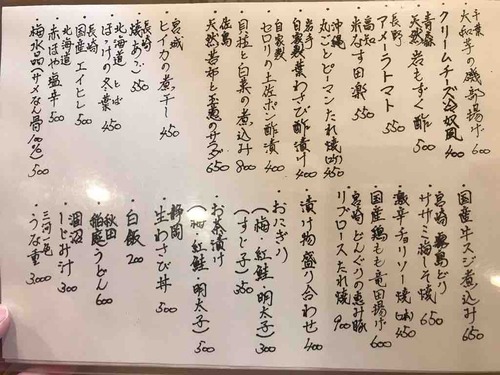 ・千葉
大和芋の磯部揚げ 600
・クリームチーズ入り奴風 400
・青森
天然岩もずく酢 500
・長野
アメーラトマト 550
・高知
米なす田楽 550
・沖縄
丸ごとピーマンたれ焼(2ヶ) 450
・岩手
自家製葉わさび酢漬け 400
・自家製
セロリの土佐ポン酢漬 400
・貝柱と白菜の煮込み 800
・佐島
天然若布と玉葱のサラダ 650
・宮城
ヒイカの煮干し 450
・長崎
焼あご 550
・北海道 とば
ほっけの冬葉 450
・長崎
国産エイヒレ 500
・北海道
赤ほや塩辛 500
・梅水晶(サメなん骨100%) 500
・国産牛スジ煮込み 650
・宮崎 霧島どり
ササミ梅しそ焼 650
・激辛チョリソー焼(2本) 450
・国産鶏もも竜田揚げ 600
・宮崎 どんぐりの恵み豚
リブロースたれ焼 900
・漬け物盛り合わせ 400
・おにぎり
(梅・紅鮭・明太子) 300
(すじ子) 350
・お茶漬け
(梅・紅鮭・明太子) 500
・静岡
生わさび丼 500
・白飯 200
・秋田
稲庭うどん 600
・涸沼
しじみ汁 300
・三河一色
うな重 3000